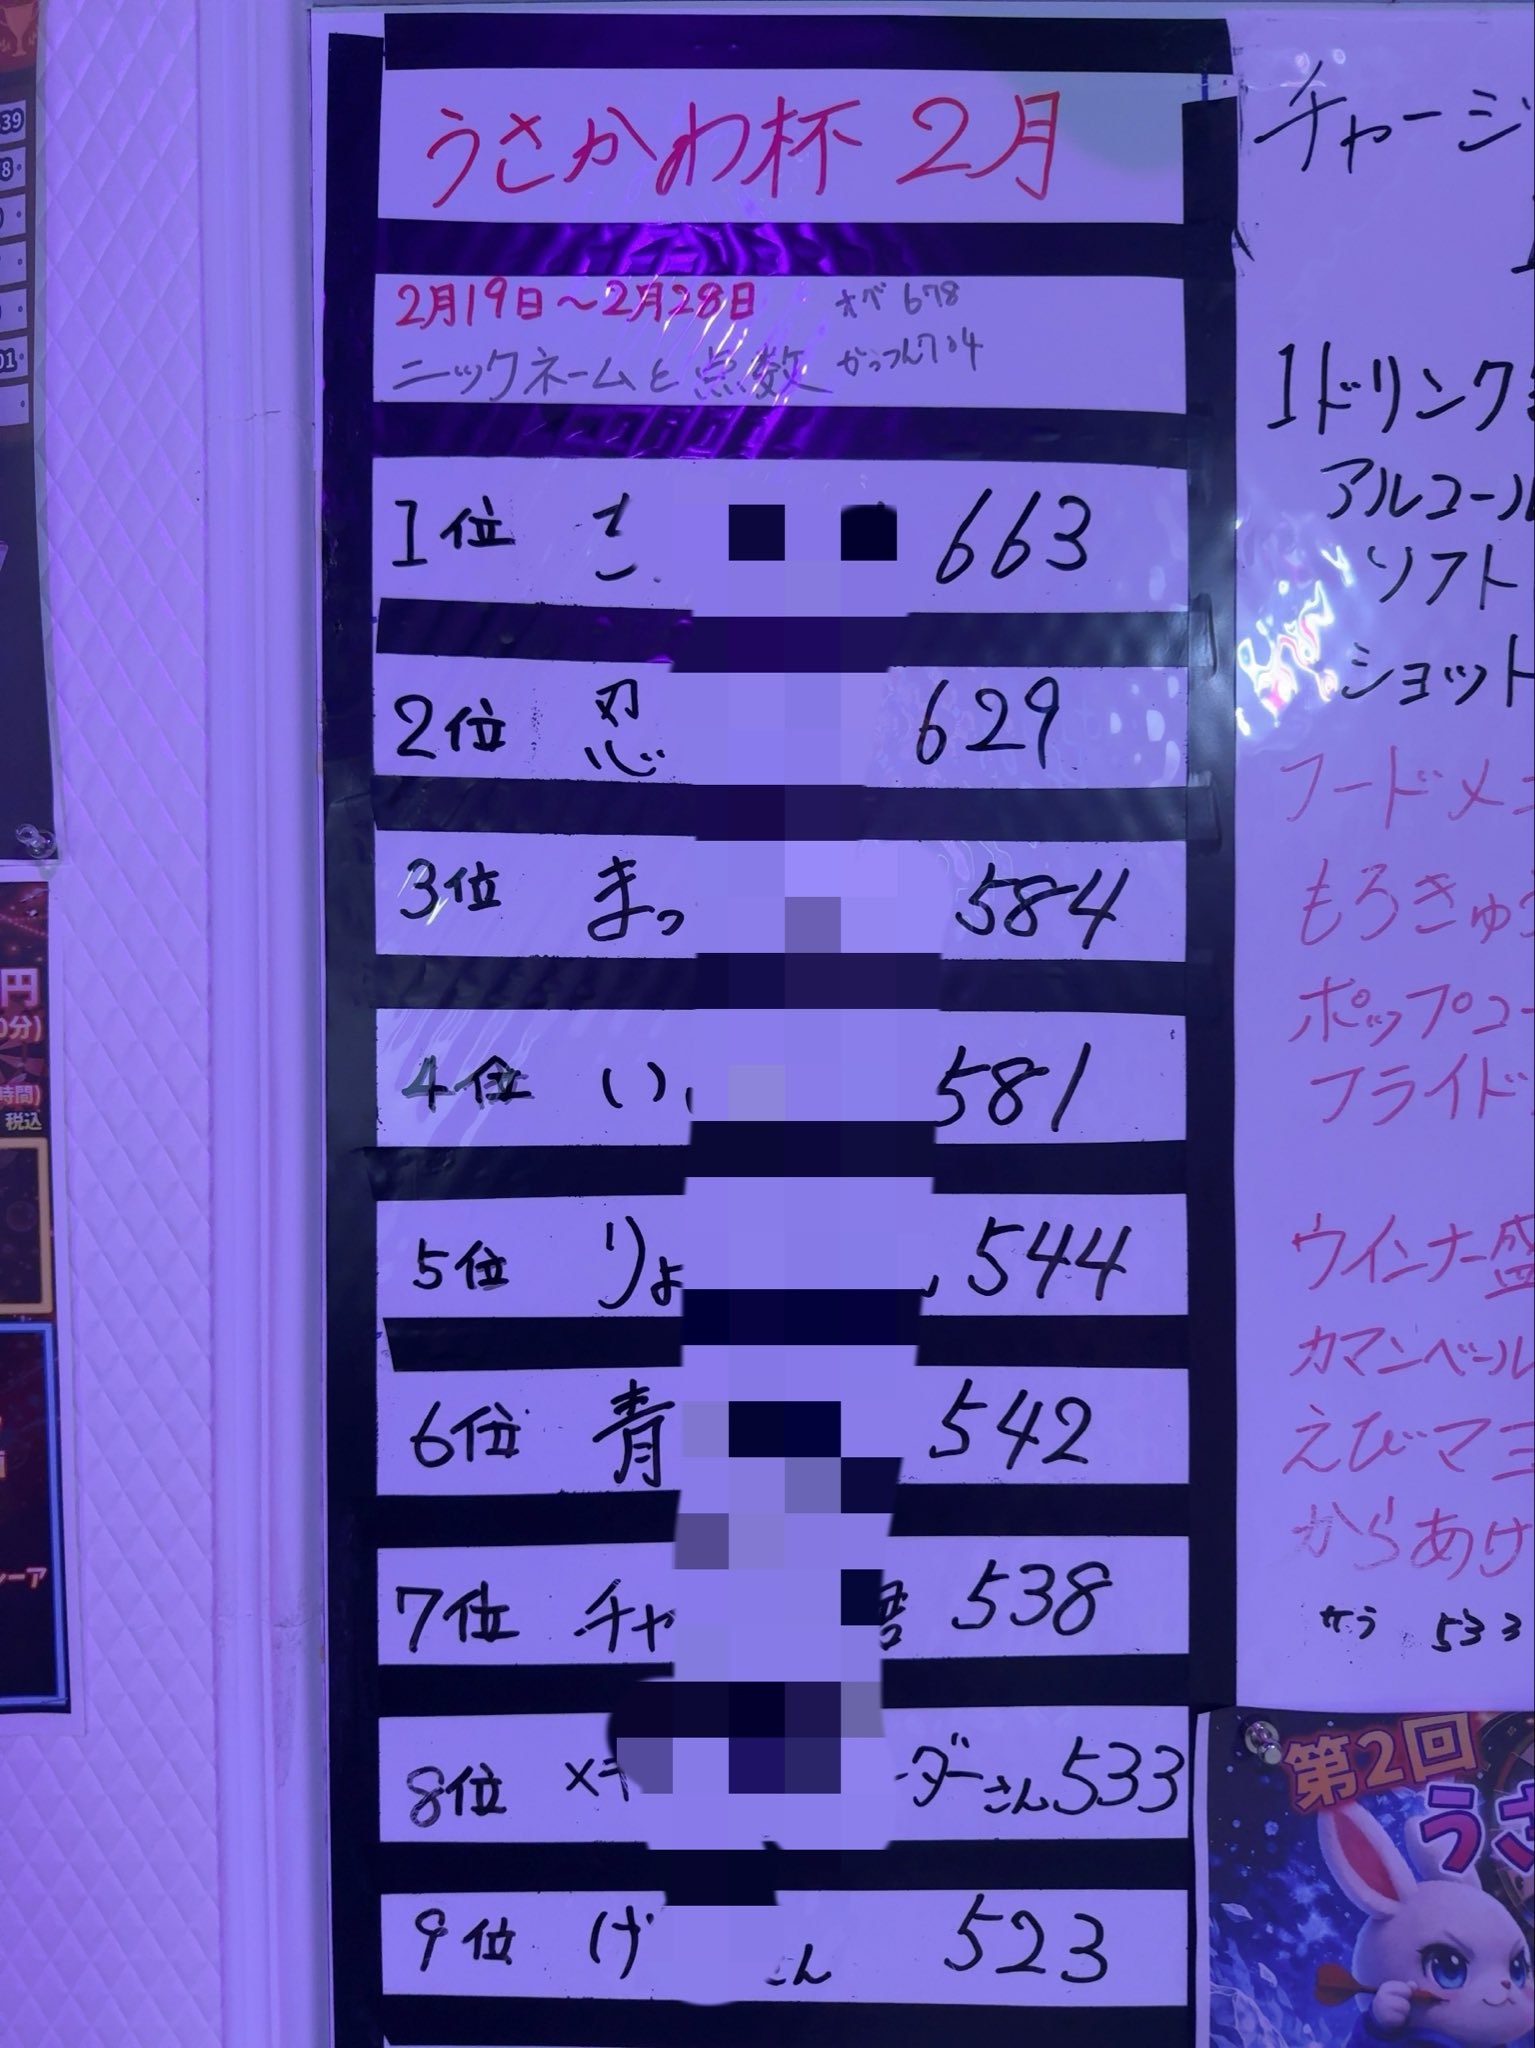 うさかわ杯 2月
2月19日～2月28日
オペ 678
ニックネームと点数
かっつん704
1位 さ 663
2位 忍 629
3位 まっ 584
4位 い 581
5位 りょ 544
6位 青 542
7位 チャ 538
8位 メラ ーダーさん 533
9位 げ さん 523
チャージ
1ドリンク
アルコール
ソフト
ショット
フードメニ
もろきゅう
ポップコー
フライド
ウインナー盛
カマンベール
えびマヨ
からあげ
サラ 533
第2回
うさ
39
8
01
円
0分)
時間)
税込